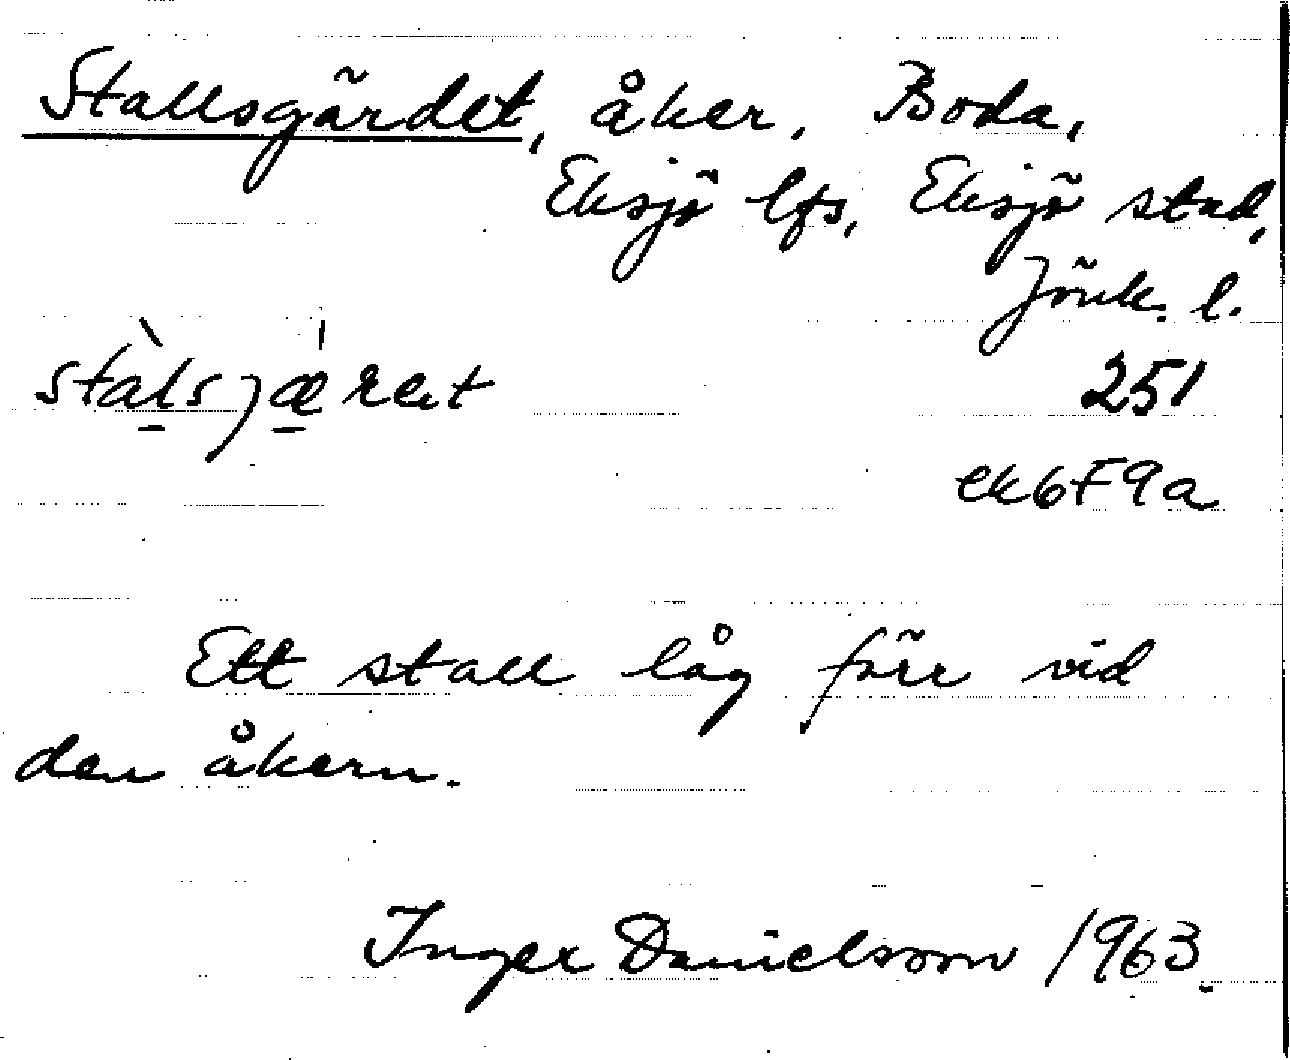 Stallsgärdet, åker, Boda,
Eksjö lfs, Eksjö stad,
Jönk. l.
stàl̠sjæ̠̍ret 251
ek6F9a
Ett stall låg förr vid
den åkern.
Inger Danielsson 1963.